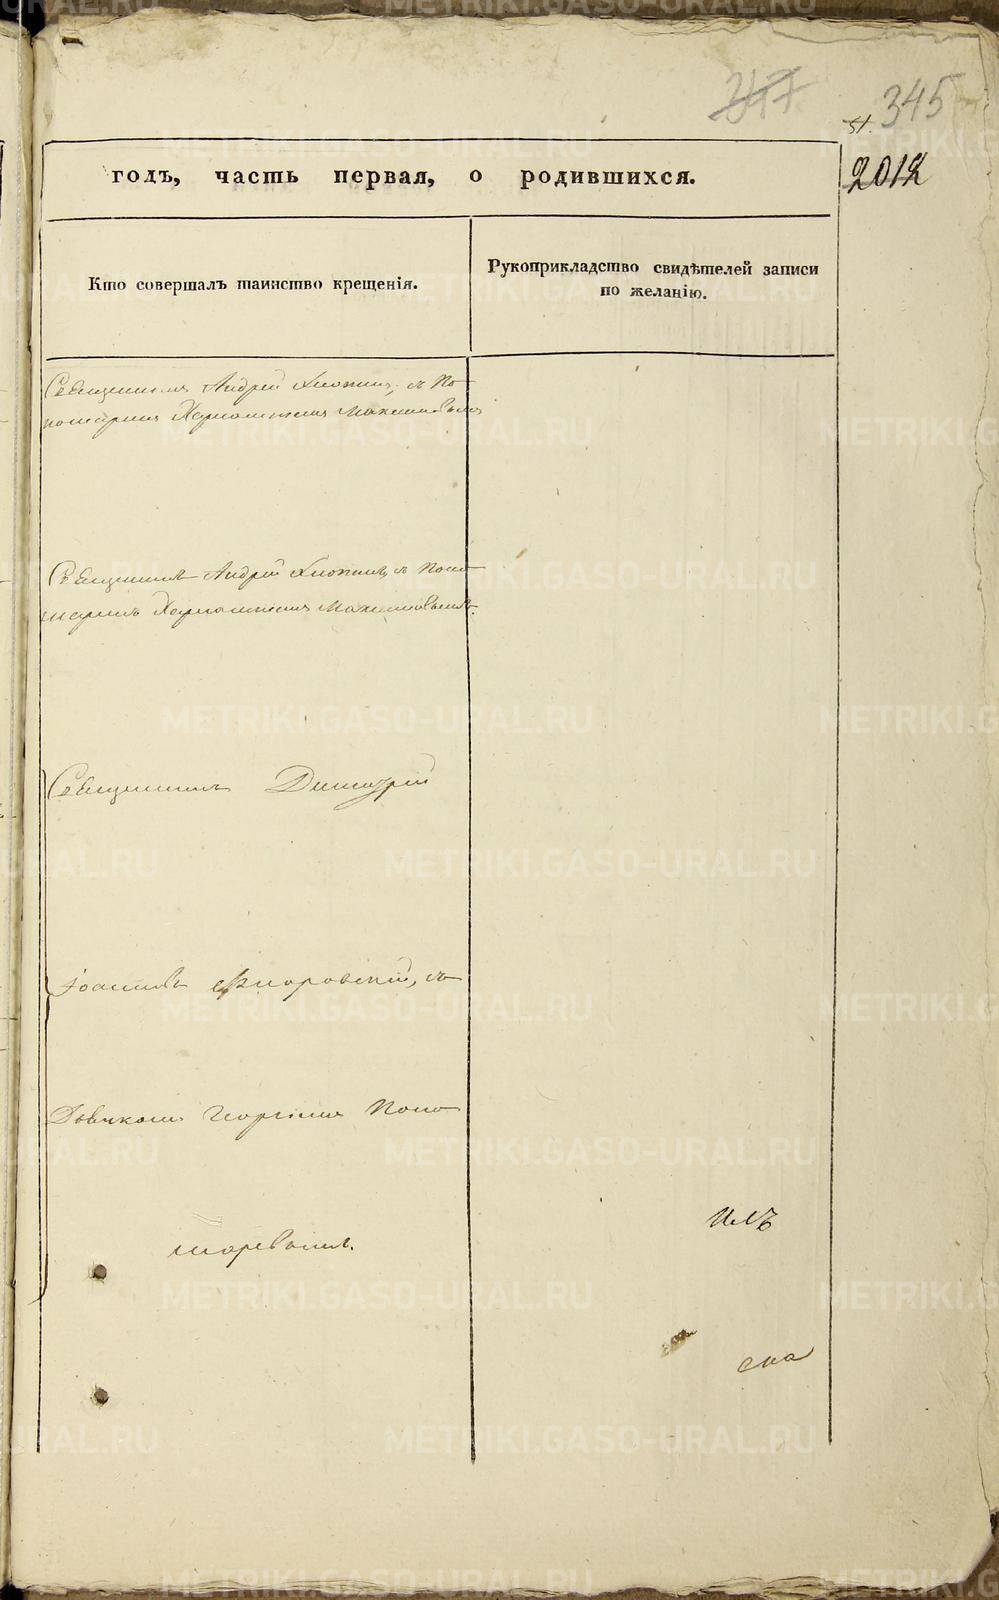 347
345
2012
годъ, часть первая, о родившихся.
Кто совершалъ таинство крещенія.
Рукоприкладство свидѣтелей записи
по желанію.
Священникъ Андрей съ По
номаремъ Максимовымъ
Священникъ Андрей съ Поно
маремъ Максимовымъ.
Священникъ Димитрій
Іоаннъ Флоровскій, съ
Дьячкомъ Георгіемъ Поно
маревымъ.
METRIKI.GASO-URAL.RU